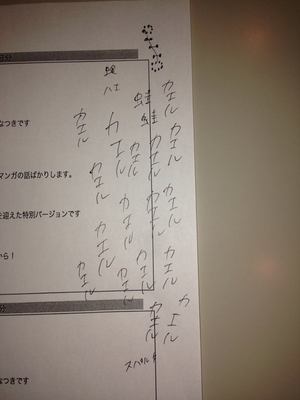 カエル
カエル
カエル
カエル
カエル
蛙
蛙
カエル
カエル
カエル
カエル
カエル
ハエ
カエル
カエル
カエル
カエル
カエル
カエル
カエル
なつきです
マンガの話ばかりします。
を迎えた特別バージョンです
から！
分
なつきです